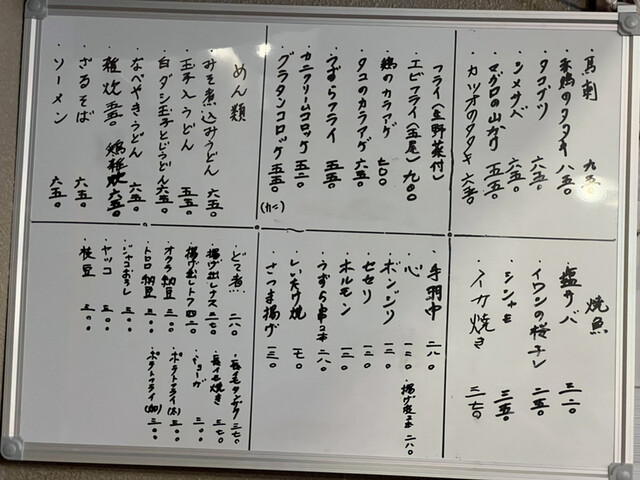 ・馬刺 九五〇
・赤鶏のタタキ 八五〇
・タコブツ 六五〇
・シメサバ 六五〇
・マグロの山かけ 五五〇
・カツオのタタキ 六五〇
フライ(生野菜付)
・エビフライ(五尾) 九〇〇
・鶏のカラアゲ 七〇〇
・タコのカラアゲ 六五〇
・うずらフライ 五五〇
・カニクリームコロッケ 五五〇
・グラタンコロッケ 五五〇
(カニ)
めん類
・みそ煮込みうどん 六五〇
・玉子入うどん 五五〇
・白ダシ玉子とじうどん 六五〇
・なべやきうどん 六五〇
・雑炊 五五〇 鶏雑炊 六五〇
・ざるそば 六五〇
・ソーメン 六五〇
焼魚
・塩サバ 三二〇
・イワシの桜干し 二五〇
・シシャモ 三五〇
・イカ焼き 三七〇
・手羽中 二八〇
・心 一二〇
揚げ
二八〇
・ボンジリ 一三〇
・セセリ 一三〇
・ホルモン 一二〇
・うずら串 二八〇
・しいたけ焼 一七〇
・さつま揚げ 一三〇
・どて煮 二八〇
・揚げ出しナス 三七〇
・揚げ出しトフ 四二〇
・オクラ納豆 三〇〇
・トロロ納豆 三〇〇
・ジャコおろし 三〇〇
・ヤッコ 三〇〇
・枝豆 三〇〇
・長イモタンザク 三七〇
・長イモ焼き 三七〇
・ミョーガ 三〇〇
・ポテトフライ(大) 三〇〇
・ポテトフライ(加) 三〇〇